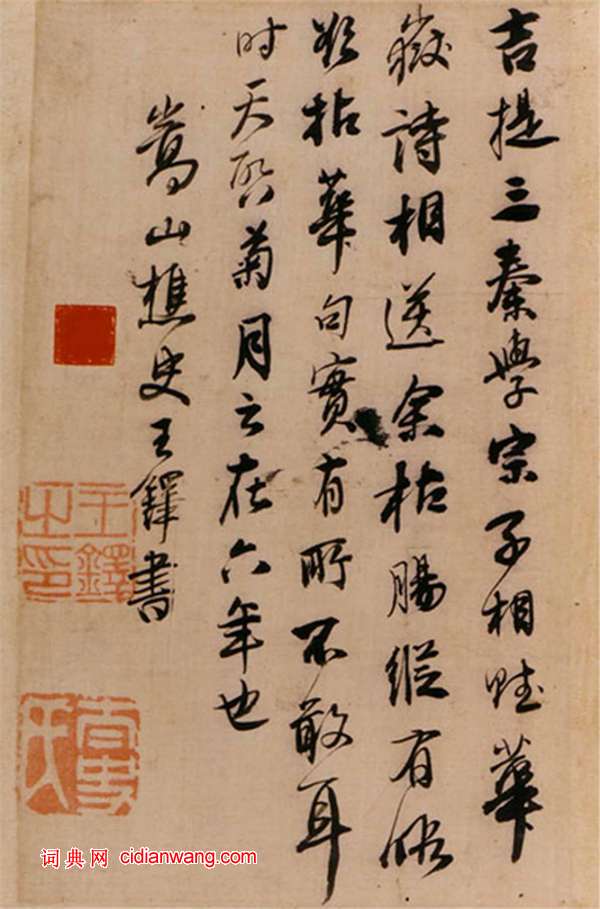 吉提三秦學宗子相賦華
嶽詩相送余枯腸縱有
拈華句實有所不敢耳
时天啟菊月云在六年也
嵩山樵史王鐸書
王鐸之印
词典网 cidianwang.com